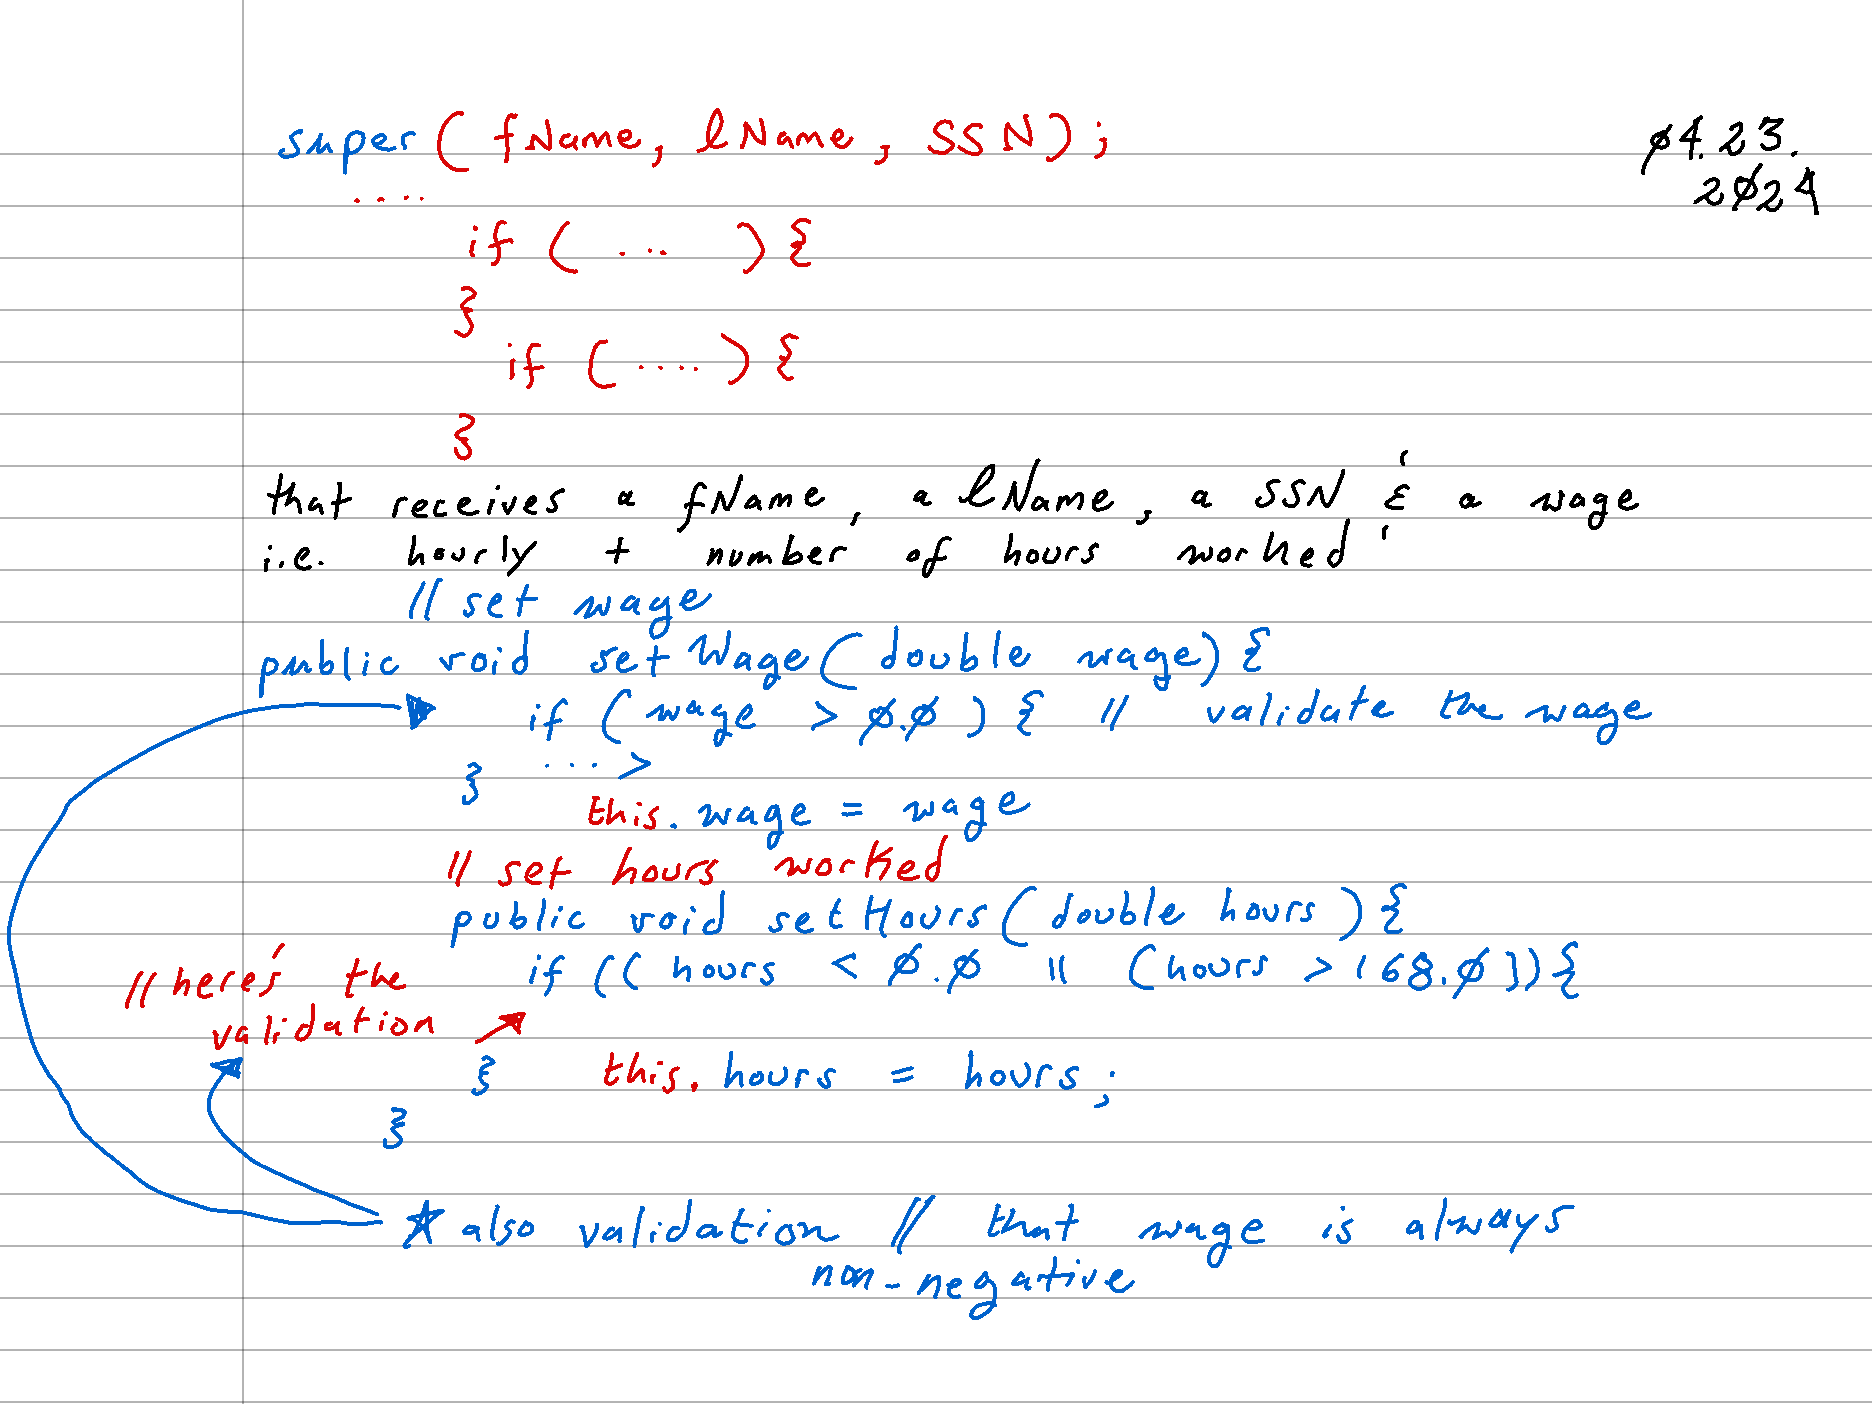 super ( fName, lName, SSN );
04.23.
2024
....
if ( ... ) {
}
if ( .... ) {
}
that receives a fName, a lName, a SSN & a wage
i.e. hourly + number of hours worked
// set wage
public void setWage ( double wage ) {
if ( wage > 0.0 ) { // validate the wage
... >
}
this. wage = wage
// set hours worked
public void setHours ( double hours ) {
if (( hours < 0.0 || (hours > 168.0 )) {
// here's the
validation
} this. hours = hours ;
}
* also validation // that wage is always
non-negative